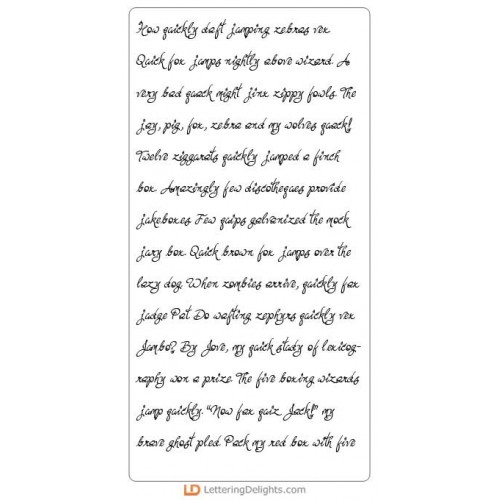 How quickly daft jumping zebras vex
Quick fox jumps nightly above wizard. A
very bad quack might jinx zippy fowls. The
jay, pig, fox, zebra and my wolves quack!
Twelve ziggurats quickly jumped a finch
box. Amazingly few discotheques provide
jukeboxes. Few quips galvanized the mock
jury box. Quick brown fox jumps over the
lazy dog. When zombies arrive, quickly fax
judge Pat. Do wafting zephyrs quickly vex
Jumbo? By Jove, my quick study of lexicog-
raphy won a prize. The five boxing wizards
jump quickly. "Now fax quiz Jack!" my
brave ghost pled. Pack my red box with five
LD LetteringDelights.com